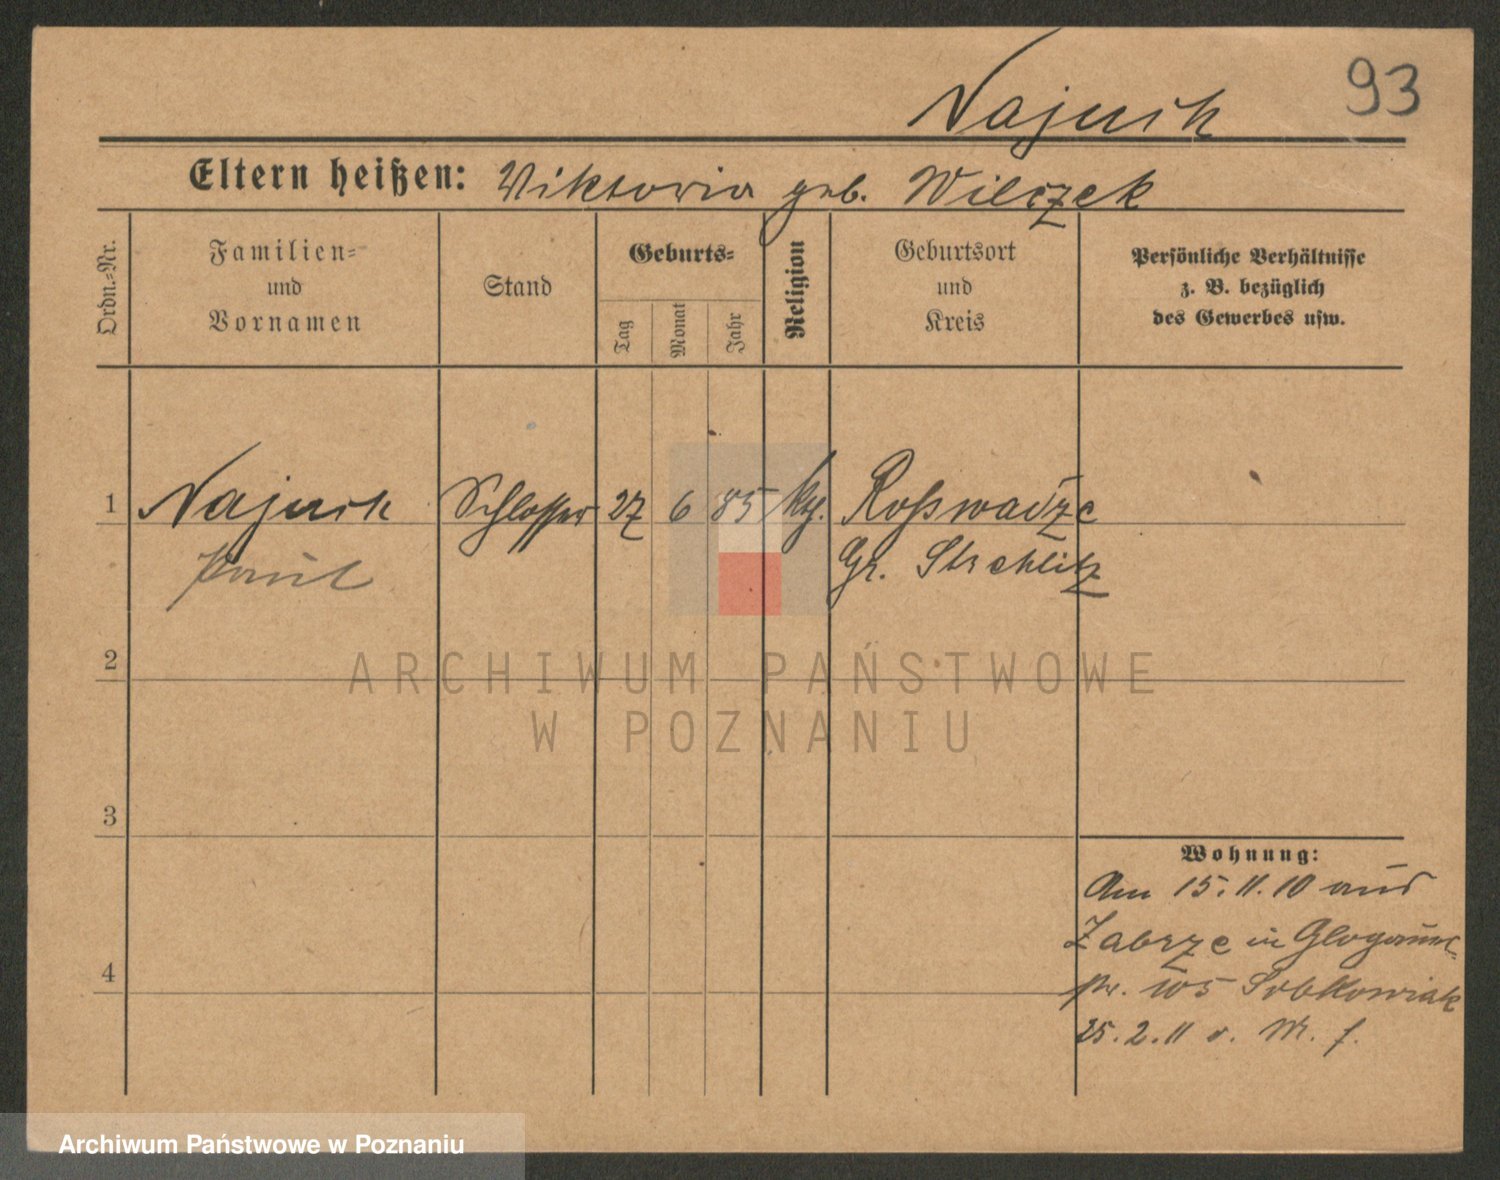 93
Najusch
Eltern heißen: Viktoria geb. Wilczek
Ordn.-Nr.
Familien-
und
Vornamen
Stand
Geburts-
Tag
Monat
Jahr
Religion
Geburtsort
und
Kreis
Persönliche Verhältnisse
z. B. bezüglich
des Gewerbes usw.
1
Schlosser 27 6 85 kth. Roßwadze
Paul
Gr. Strehlitz
2
ARCHIWUM PAŃSTWOWE
W POZNANIU
3
Wohnung:
Am 15.11.10 aus
Zabrze in Glogauer-
str. 105 Sobkowiak
4
25.2.11 v. W. f.
Archiwum Państwowe w Poznaniu